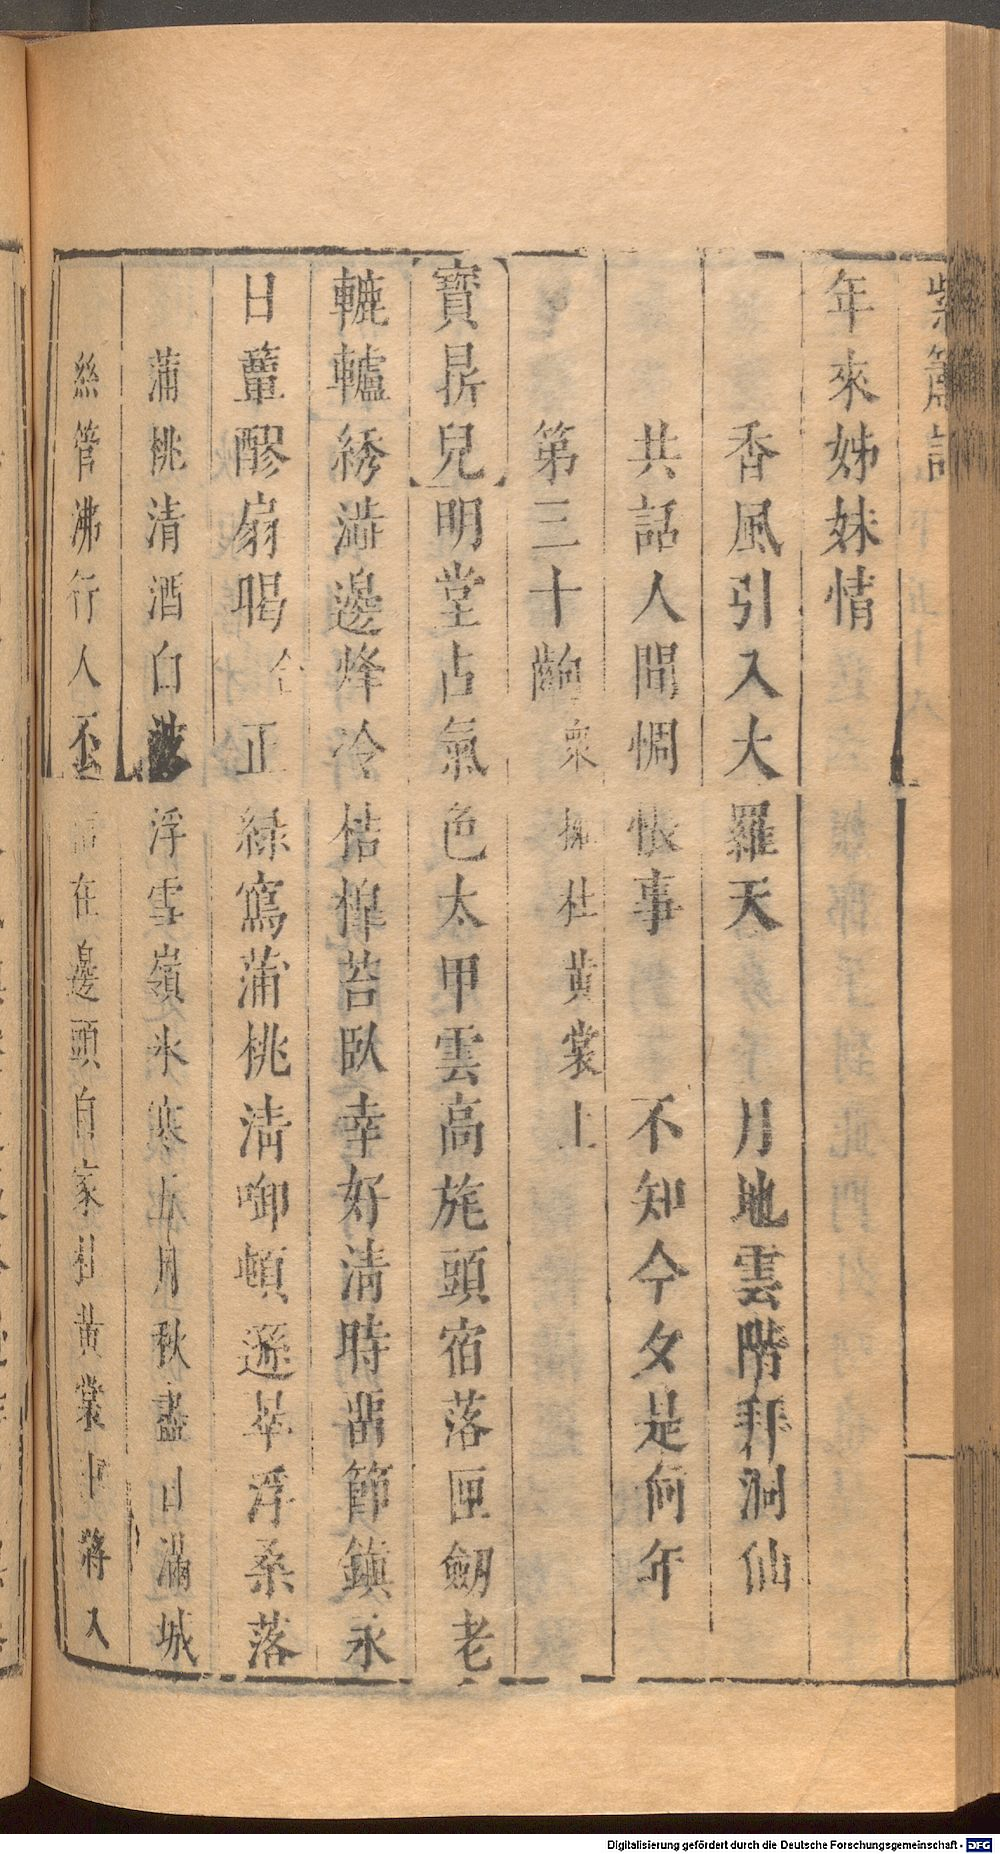 紫簫記
年來姊妹情
香風引入大羅天　月地雲階拜洞仙
共話人間惆悵事　不知今夕是何年
第三十齣　衆擁杜黃裳上
寶㫷兒明堂占氣色太甲雲高旄頭宿落匣劒老
轆轤綉澁邊烽冷桔橰苔臥幸好清時畱節鎮永
日蕈醪扇暍合正綠窩蒲桃淸啣頓遜苹浮桑落
蒲桃清酒白波浮雪嶺氷寒五月秋盡日滿城
絲管沸行人不在邊頭自家杜黃裳十將入
Digitalisierung gefördert durch die Deutsche Forschungsgemeinschaft - DFG